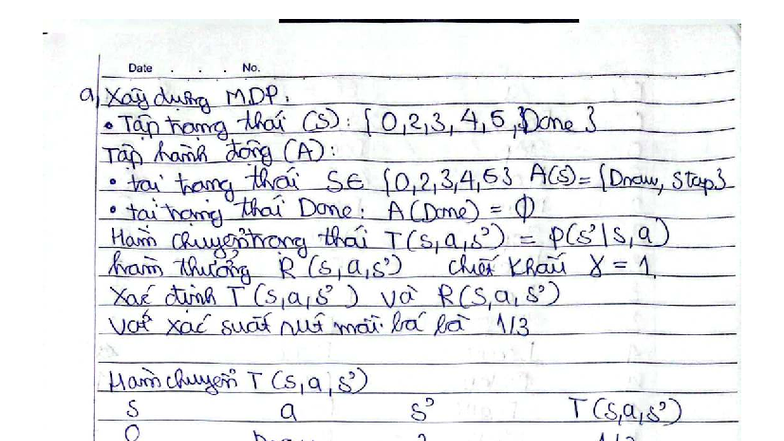 Date . . . No.
a, Xây dựng MDP.
• Tập trạng thái (S): { 0,2,3, 4,5,}Done }
Tập hành động (A):
• tại trạng thái S∈ {0,2,3,4,5} A(s)= {Draw, Stop}
• tại trạng thái Done: A(Done) = ∅
Hàm chuyển trạng thái T(s,a,s') = P(s'|s,a)
hàm thưởng R(s,a,s') chiết khấu γ = 1
Xác định T(s,a,s') và R(s,a,s')
với xác suất rút mỗi lá là 1/3
Hàm chuyển T(s,a,s')
s a s' T(s,a,s')
0 Draw 2 1/3